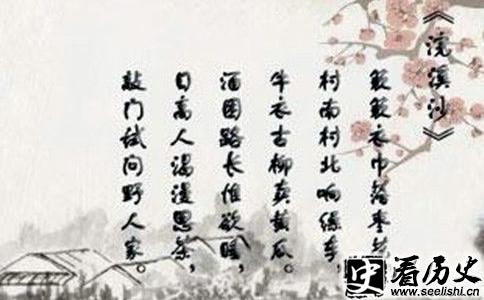 《浣溪沙》
簌簌衣巾落枣
村南村北响缲车，
牛衣古柳卖黄瓜。
酒困路长惟欲睡，
日高人渴漫思茶，
敲门试问野人家。
史 看历史
www.seelishi.cn